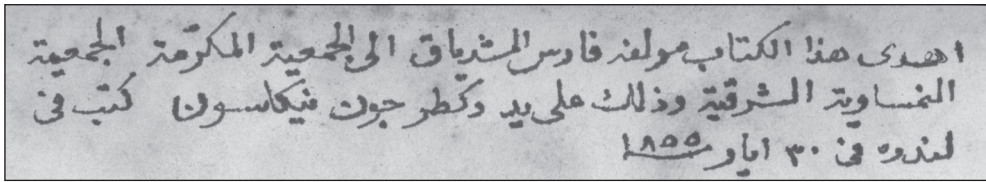 اهدى هذا الكتاب مولفه فارس الشدياق الى الجمعية المكرّمة الجمعية
النمساوية الشرقية وذلك على يد دكطر جون نيكلسون كتب فى
لندره فى ٣٠ ايار سنة ١٨٥٥